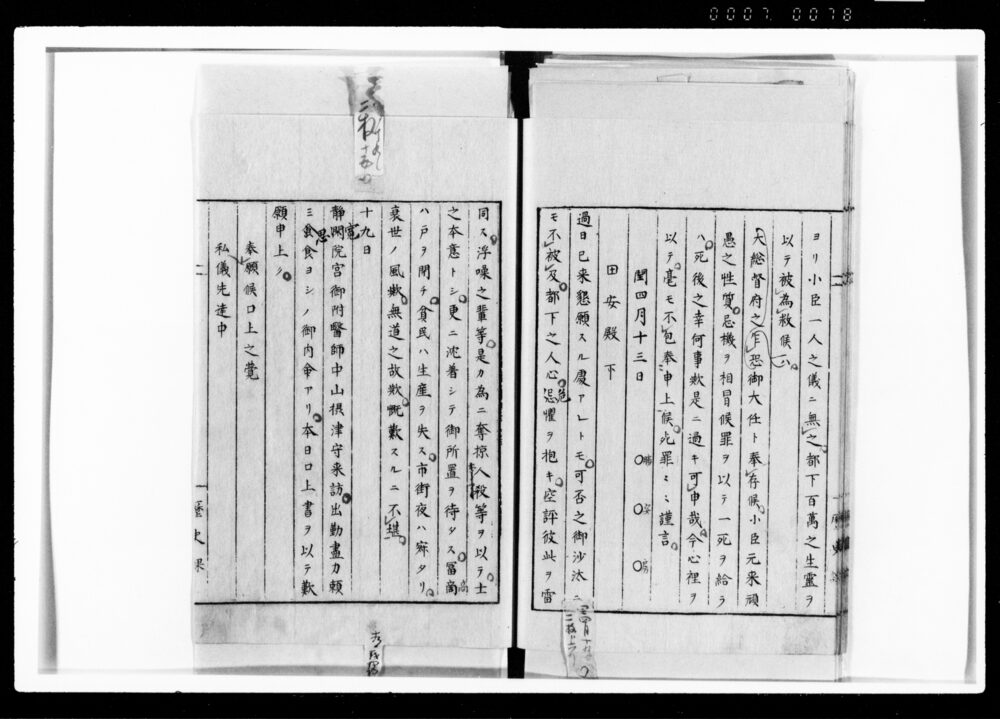 0007 0078
ヨリ小臣一人之儀ニ無之都下百萬之生靈ヲ
以テ被為救候ハ
大総督府之乍恐御大任ト奉存候小臣元来頑
愚之性質忌機ヲ相冒候罪ヲ以テ一死ヲ給ラ
ハ死後之幸何事歟是ニ過キ可申哉今心裡ヲ
以テ毫モ不包奉申上候死罪々々謹言
閏四月十三日 勝安房
田安殿下
過日已来懇願スル處アレトモ可否之御沙汰ニ
モ不被及都下之人心危懼ヲ抱キ空評彼此ヲ雷
同ス浮噪之輩等是カ為ニ奪掠人殺等ヲ以テ士
之本意トシ更ニ沈着シテ御所置ヲ待タス冨商
ハ戸ヲ閉チ貧民ハ生産ヲ失ス市街夜ハ寂タリ
衰世ノ風歟無道之故歟慨歎スルニ不堪
十九日
静寛院宮御附醫師中山摂津守来訪出勤盡力頼
ミ思食ヨシノ御内命アリ本日口上書ヲ以テ歎
願申上ノ
奉願候口上之覚
私儀先達中
歴史課